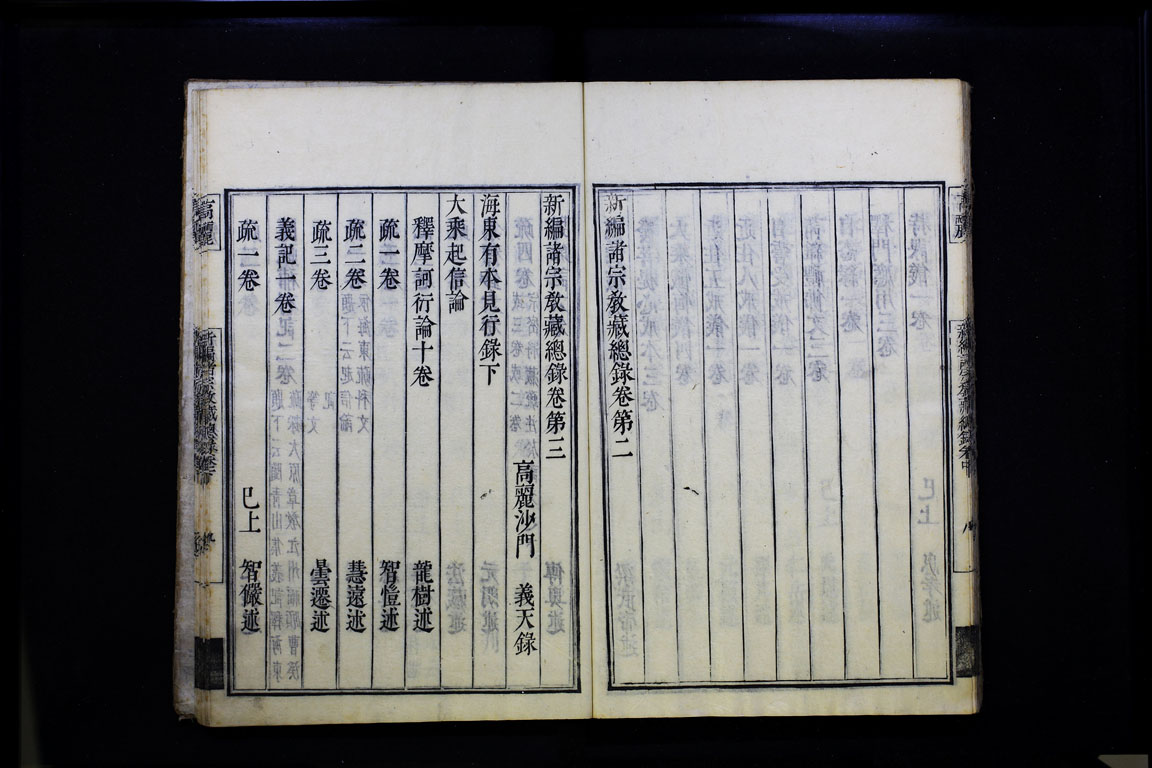 新編諸宗敎藏總錄卷第二
新編諸宗敎藏總錄卷第三
高麗沙門 義天錄
海東有本見行錄下
大乘起信論
釋摩訶衍論十卷 龍樹述
疏一卷 智愷述
疏二卷 慧遠述
疏三卷 曇遷述
義記一卷
疏一卷 已上 智儼述